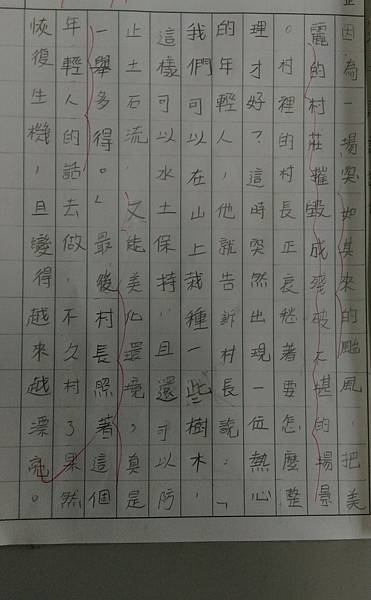 因為一場突如其來的颱風，把美
麗的村莊摧毀成殘破不堪的場景
。村裡的村長正哀愁著要怎麼整
理才好？這時突然出現一位熱心
的年輕人，他就告訴村長說：「
我們可以在山上栽種一些樹木，
這樣可以水土保持，且還可以防
止土石流，又能美化還境，真是
一舉多得。」最後村長照著這個
年輕人的話去做，不久村了果然
恢復生機，且變得越來越漂亮。